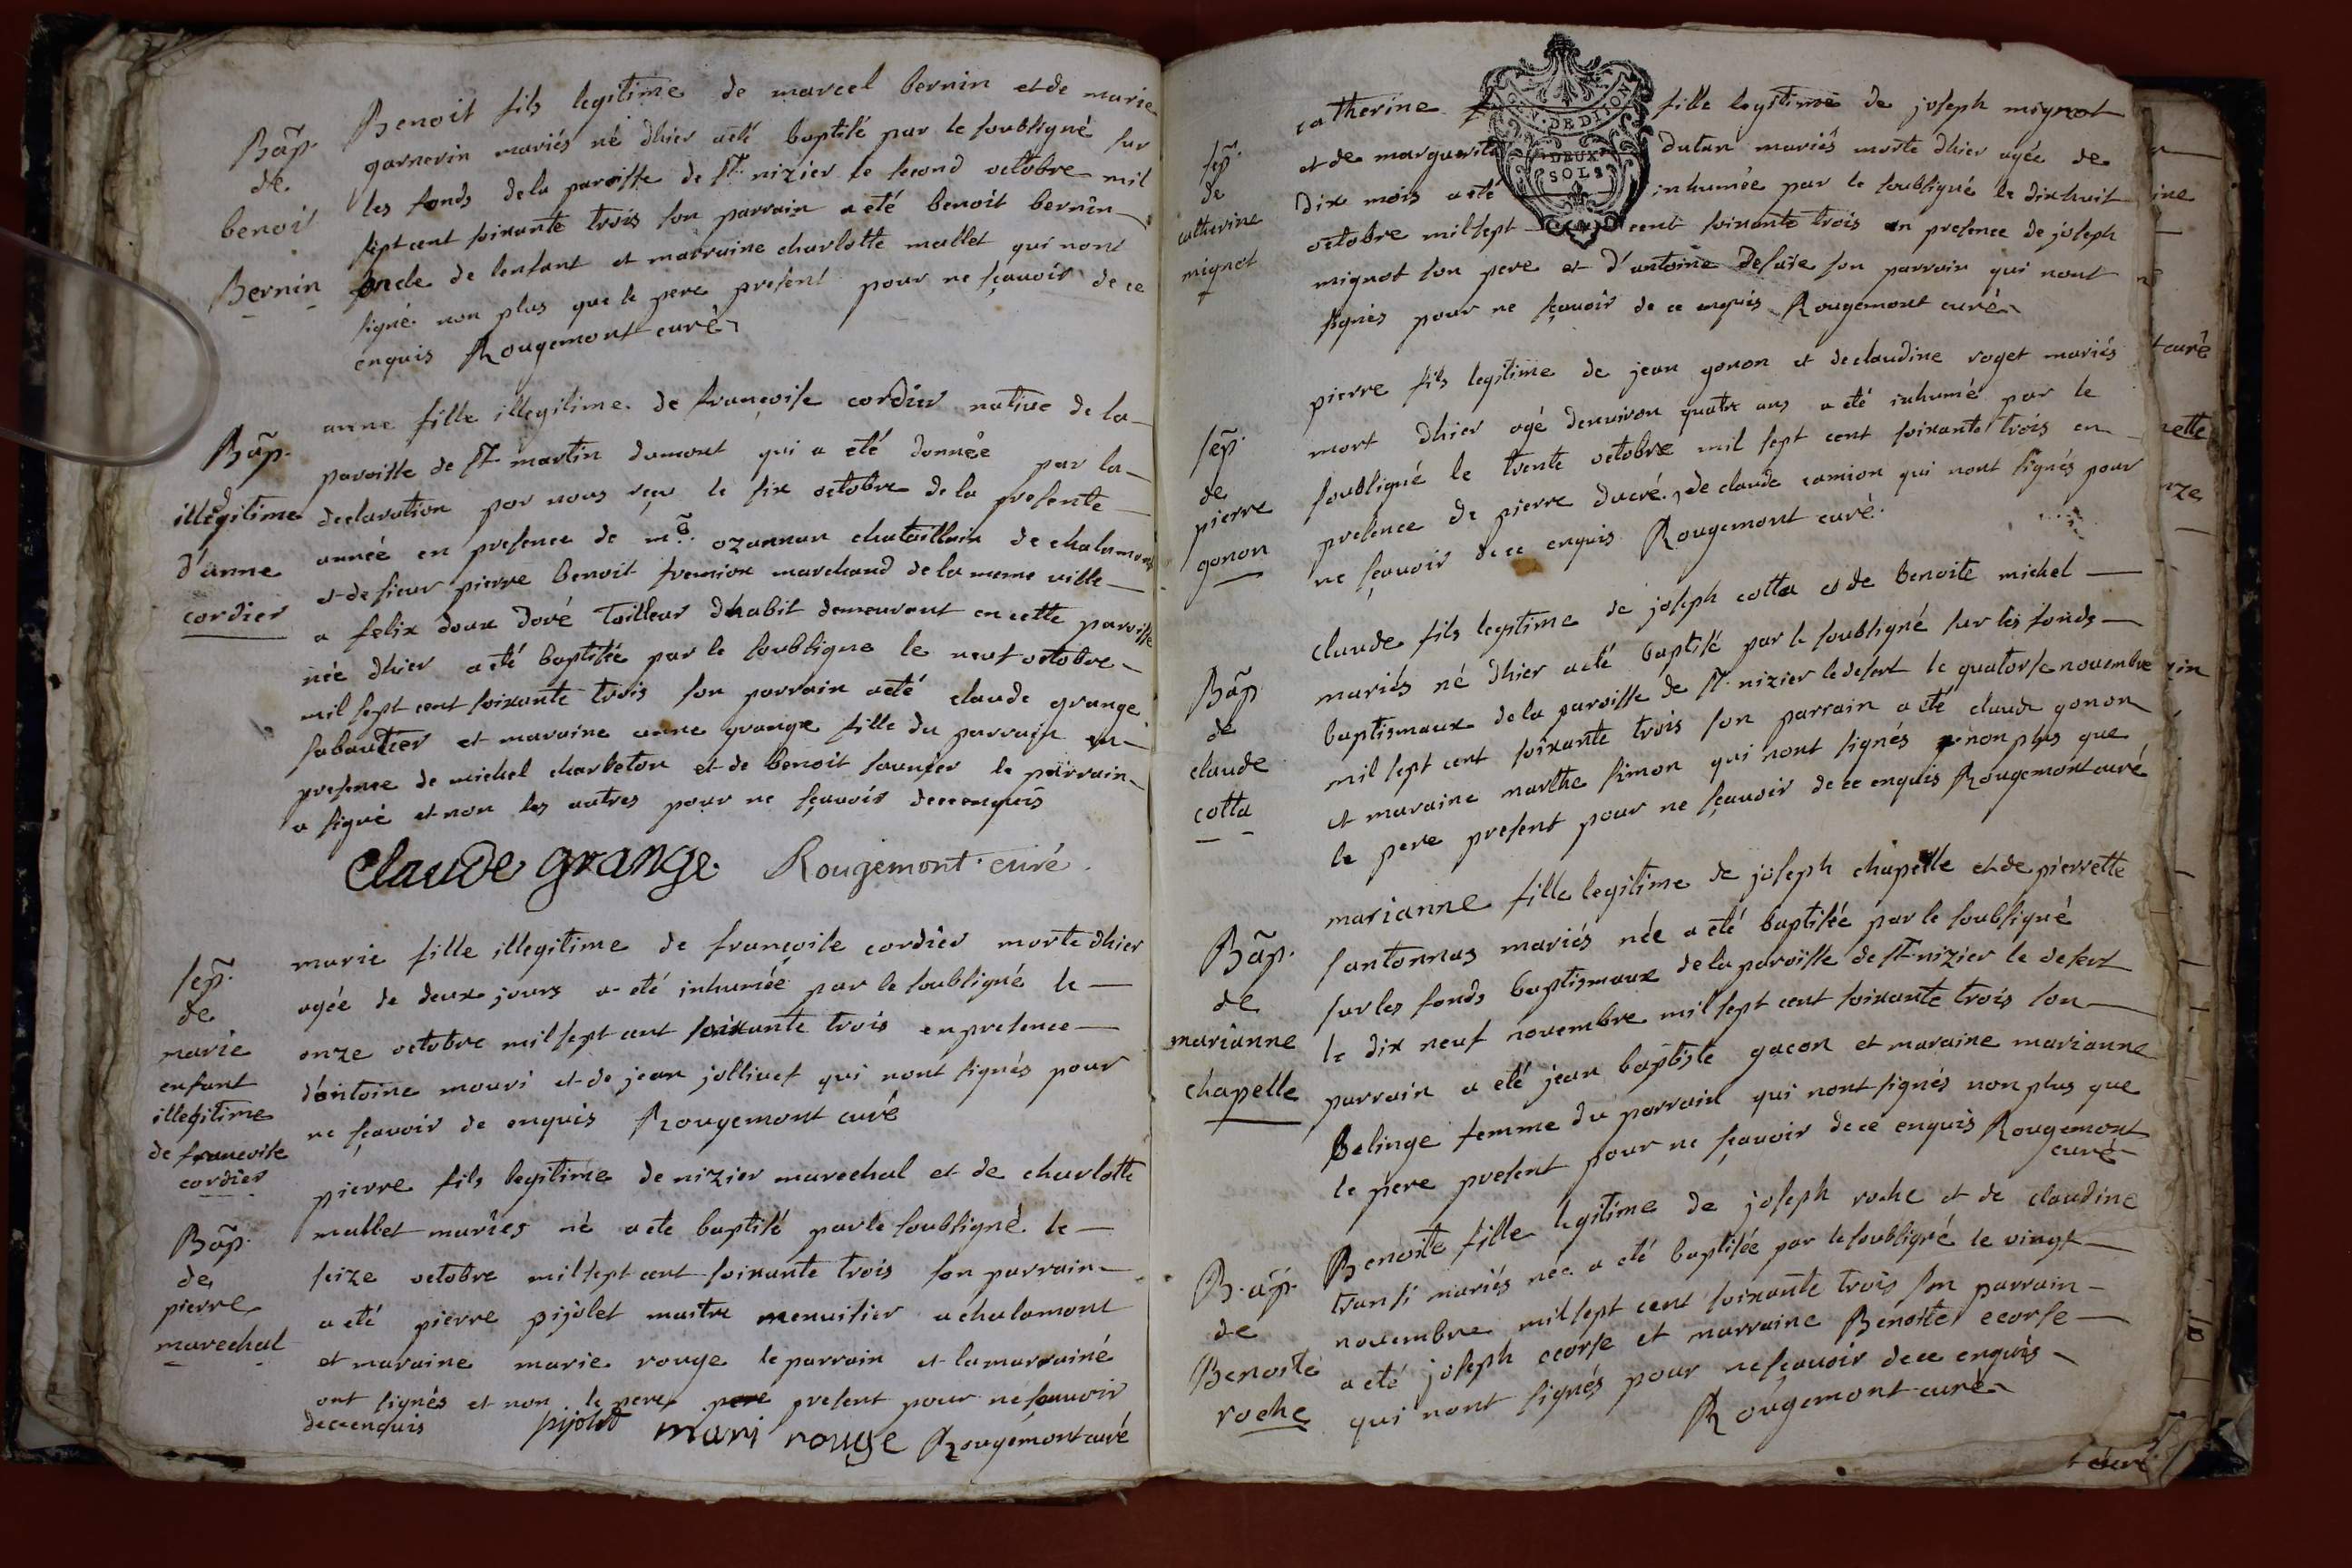 Bãp.
de
benoit
Bernin
Benoit fils legitime de marcel bernin et de marie
garnerin mariés né dhier a eté baptisé par le soubsigné sur
les fonds de la paroisse de St nizier le second octobre mil
sept cent soixante trois son parrain a eté benoit bernin
oncle de lenfant et marraine charlotte mallet qui nont
signé non plus que le pere present pour ne sçavoir de ce
enquis Rougemont curé
Bãp.
illégitime
d'anne
cordier
anne fille illegitime de françoise cordier native de la
paroisse de St martin dumont qui a eté donnée par la
declaration par nous reçu le six octobre de la presente
année en presence de me. ozannan chataillain de chalamont
et de sieur pierre benoit fremion marchand de la meme ville
a felix doux doré tailleur dhabit demeurant en cette paroisse
née dhier a eté baptisée par le soubsigne le neuf octobre
mil sept cent soixante trois son parrain a eté claude grange
sabautier et maraine anne grange fille du parrain en
presence de michel charbeton et de benoit saunier le parrain
a signé et non les autres pour ne sçavoir de ce enquis
Claude grange Rougemont curé.
sep̃.
de
marie
enfant
illegitime
de francoise
cordier
marie fille illegitime de françoise cordier morte dhier
agée de deux jours a eté inhumée par le soubsigné le
onze octobre mil sept cent soixante trois en presence
d'antoine mouri et de jean jollivet qui nont signés pour
ne sçavoir de enquis Rougemont curé
Bãp.
de
pierre
marechal
pierre fils legitime de nizier marechal et de charlotte
mallet mariés né a ete baptisé par le soubsigné le
seize octobre mil sept cent soixante trois son parrain
a eté pierre pijolet maitre menuisier a chalamont
et maraine marie rouge le parrain et la marrainé
ont signés et non le pere pere present pour ne scavoir
de ce enquis pijolet mari rouge Rougemont curé
sep̃.
de
catherine
mignot
DE DIJON
DEUX
SOLS
catherine fille legitime de joseph mignot
et de marguerite dutan mariés morte dhier agée de
dix mois a eté inhumée par le soubsigné le dixhuit
octobre mil sept cent soixante trois en presence de joseph
mignot son pere et d'antoine desaie son parrain qui nont
signés pour ne sçavoir de ce enquis Rougemont curé
sep̃.
de
pierre
gonon
pierre fils legitime de jean gonon et de claudine roget mariés
mort dhier agé denviron quatre ans a eté inhumé par le
soubsigné le trente octobre mil sept cent soixante trois en
presence de pierre ducré, de claude camion qui nont signés pour
ne sçavoir de ce enquis Rougemont curé.
Bãp
de
claude
cotta
claude fils legitime de joseph cotta et de benoite michel
mariés né dhier a eté baptisé par le soubsigné sur les fonds
baptismaux de la paroisse de St nizier le desert le quatorse novembre
mil sept cent soixante trois son parrain a eté claude gonon
et maraine marthe simon qui nont signés non plus que
le pere present pour ne sçavoir de ce enquis Rougemont curé
Bãp.
de
marianne
chapelle
marianne fille legitime de joseph chapelle et de pierrette
santonnas mariés née a eté baptisée par le soubsigné
sur les fonds baptismaux de la paroisse de St nizier le desert
le dix neuf novembre mil sept cent soixante trois son
parrain a eté jean baptiste gacon et maraine marianne
Belinge femme du parrain qui nont signés non plus que
le pere present pour ne sçavoir de ce enquis Rougemont
curé
Bãp.
de
Benoite
roche
Benoite fille legitime de joseph roche et de claudine
transi mariés née a eté baptisée par le soubsigné le vingt
novembre mil sept cent soixante trois son parrain
a eté joseph ecorse et marraine Benoite ecorse
qui nont signés pour ne scavoir de ce enquis
Rougemont curé
ine
t curé
nette
nze
t curé